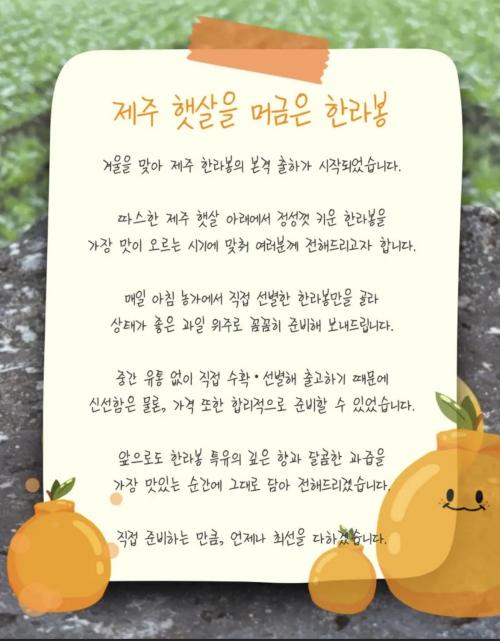 제주 햇살을 머금은 한라봉
겨울을 맞아 제주 한라봉의 본격 출하가 시작되었습니다.
따스한 제주 햇살 아래에서 정성껏 키운 한라봉을
가장 맛이 오르는 시기에 맞춰 여러분께 전해드리고자 합니다.
매일 아침 농가에서 직접 선별한 한라봉만을 골라
상태가 좋은 과일 위주로 꼼꼼히 준비해 보내드립니다.
중간 유통 없이 직접 수확•선별해 출고하기 때문에
신선함은 물론, 가격 또한 합리적으로 준비할 수 있었습니다.
앞으로도 한라봉 특유의 깊은 향과 달콤한 과즙을
가장 맛있는 순간에 그대로 담아 전해드리겠습니다.
직접 준비하는 만큼, 언제나 최선을 다하겠습니다.